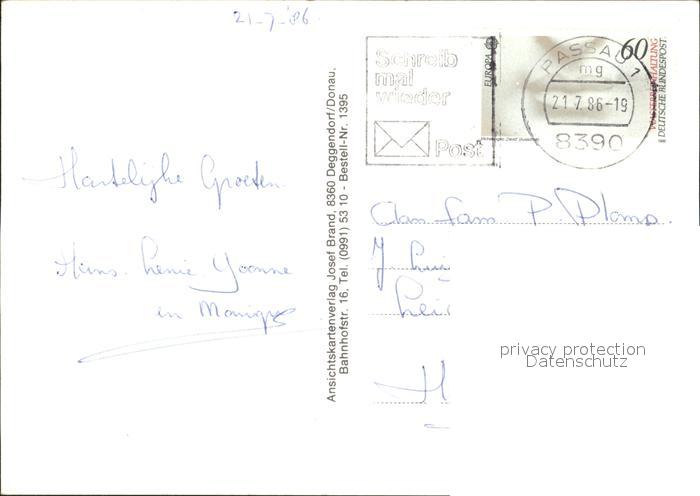 21-7-'86
Hartelijke Groeten.
Hans. Lenie. Yvonne
en Monique
Ansichtskartenverlag Josef Brand, 8360 Deggendorf/Donau,
Bahnhofstr. 16, Tel. (0991) 53 10 - Bestell-Nr. 1395
Schreib
mal
wieder
Post
EUROPA
60
DEUTSCHE BUNDESPOST
PASSAU 1
mg
21.7.86-19
8390
Aan Fam P. Plomp.
privacy protection
Datenschutz